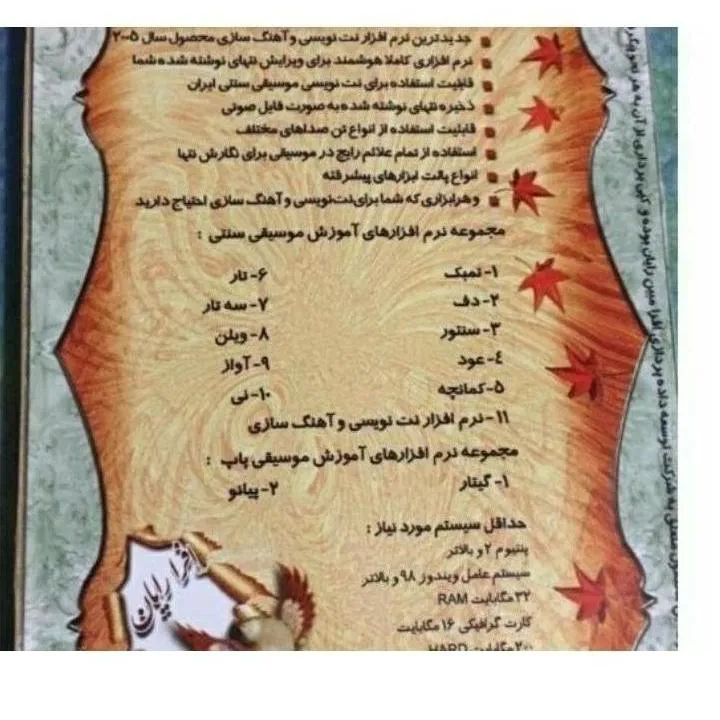 جدیدترین نرم افزار نت نویسی و آهنگ سازی محصول سال ۲۰۰۵
نرم افزاری کاملا هوشمند برای ویرایش نتهای نوشته شده شما
قابلیت استفاده برای نت نویسی موسیقی سنتی ایران
ذخیره نتهای نوشته شده به صورت فایل صوتی
قابلیت استفاده از انواع تن صداهای مختلف
استفاده از تمام علائم رایج در موسیقی برای نگارش نتها
انواع پالت ابزارهای پیشرفته
و هرابزاری که شما برای نت‌نویسی و آهنگ سازی احتیاج دارید
مجموعه نرم افزارهای آموزش موسیقی سنتی :
۱- تمبک ۶- تار
۲- دف ۷- سه تار
۳- سنتور ۸- ویلن
۴- عود ۹- آواز
۵- کمانچه ۱۰- نی
۱۱- نرم افزار نت نویسی و آهنگ سازی
مجموعه نرم افزارهای آموزش موسیقی پاپ :
۱- گیتار ۲- پیانو
حداقل سیستم مورد نیاز :
پنتیوم ۲ و بالاتر
سیستم عامل ویندوز ۹۸ و بالاتر
۳۲ مگابایت RAM
کارت گرافیکی ۱۶ مگابایت
۲۰۰ مگابایت HARD
افرا رایان
به شرکت توسعه داده پردازی افرا مبین رایان بوده و کپی برداری از آن به هر نحو